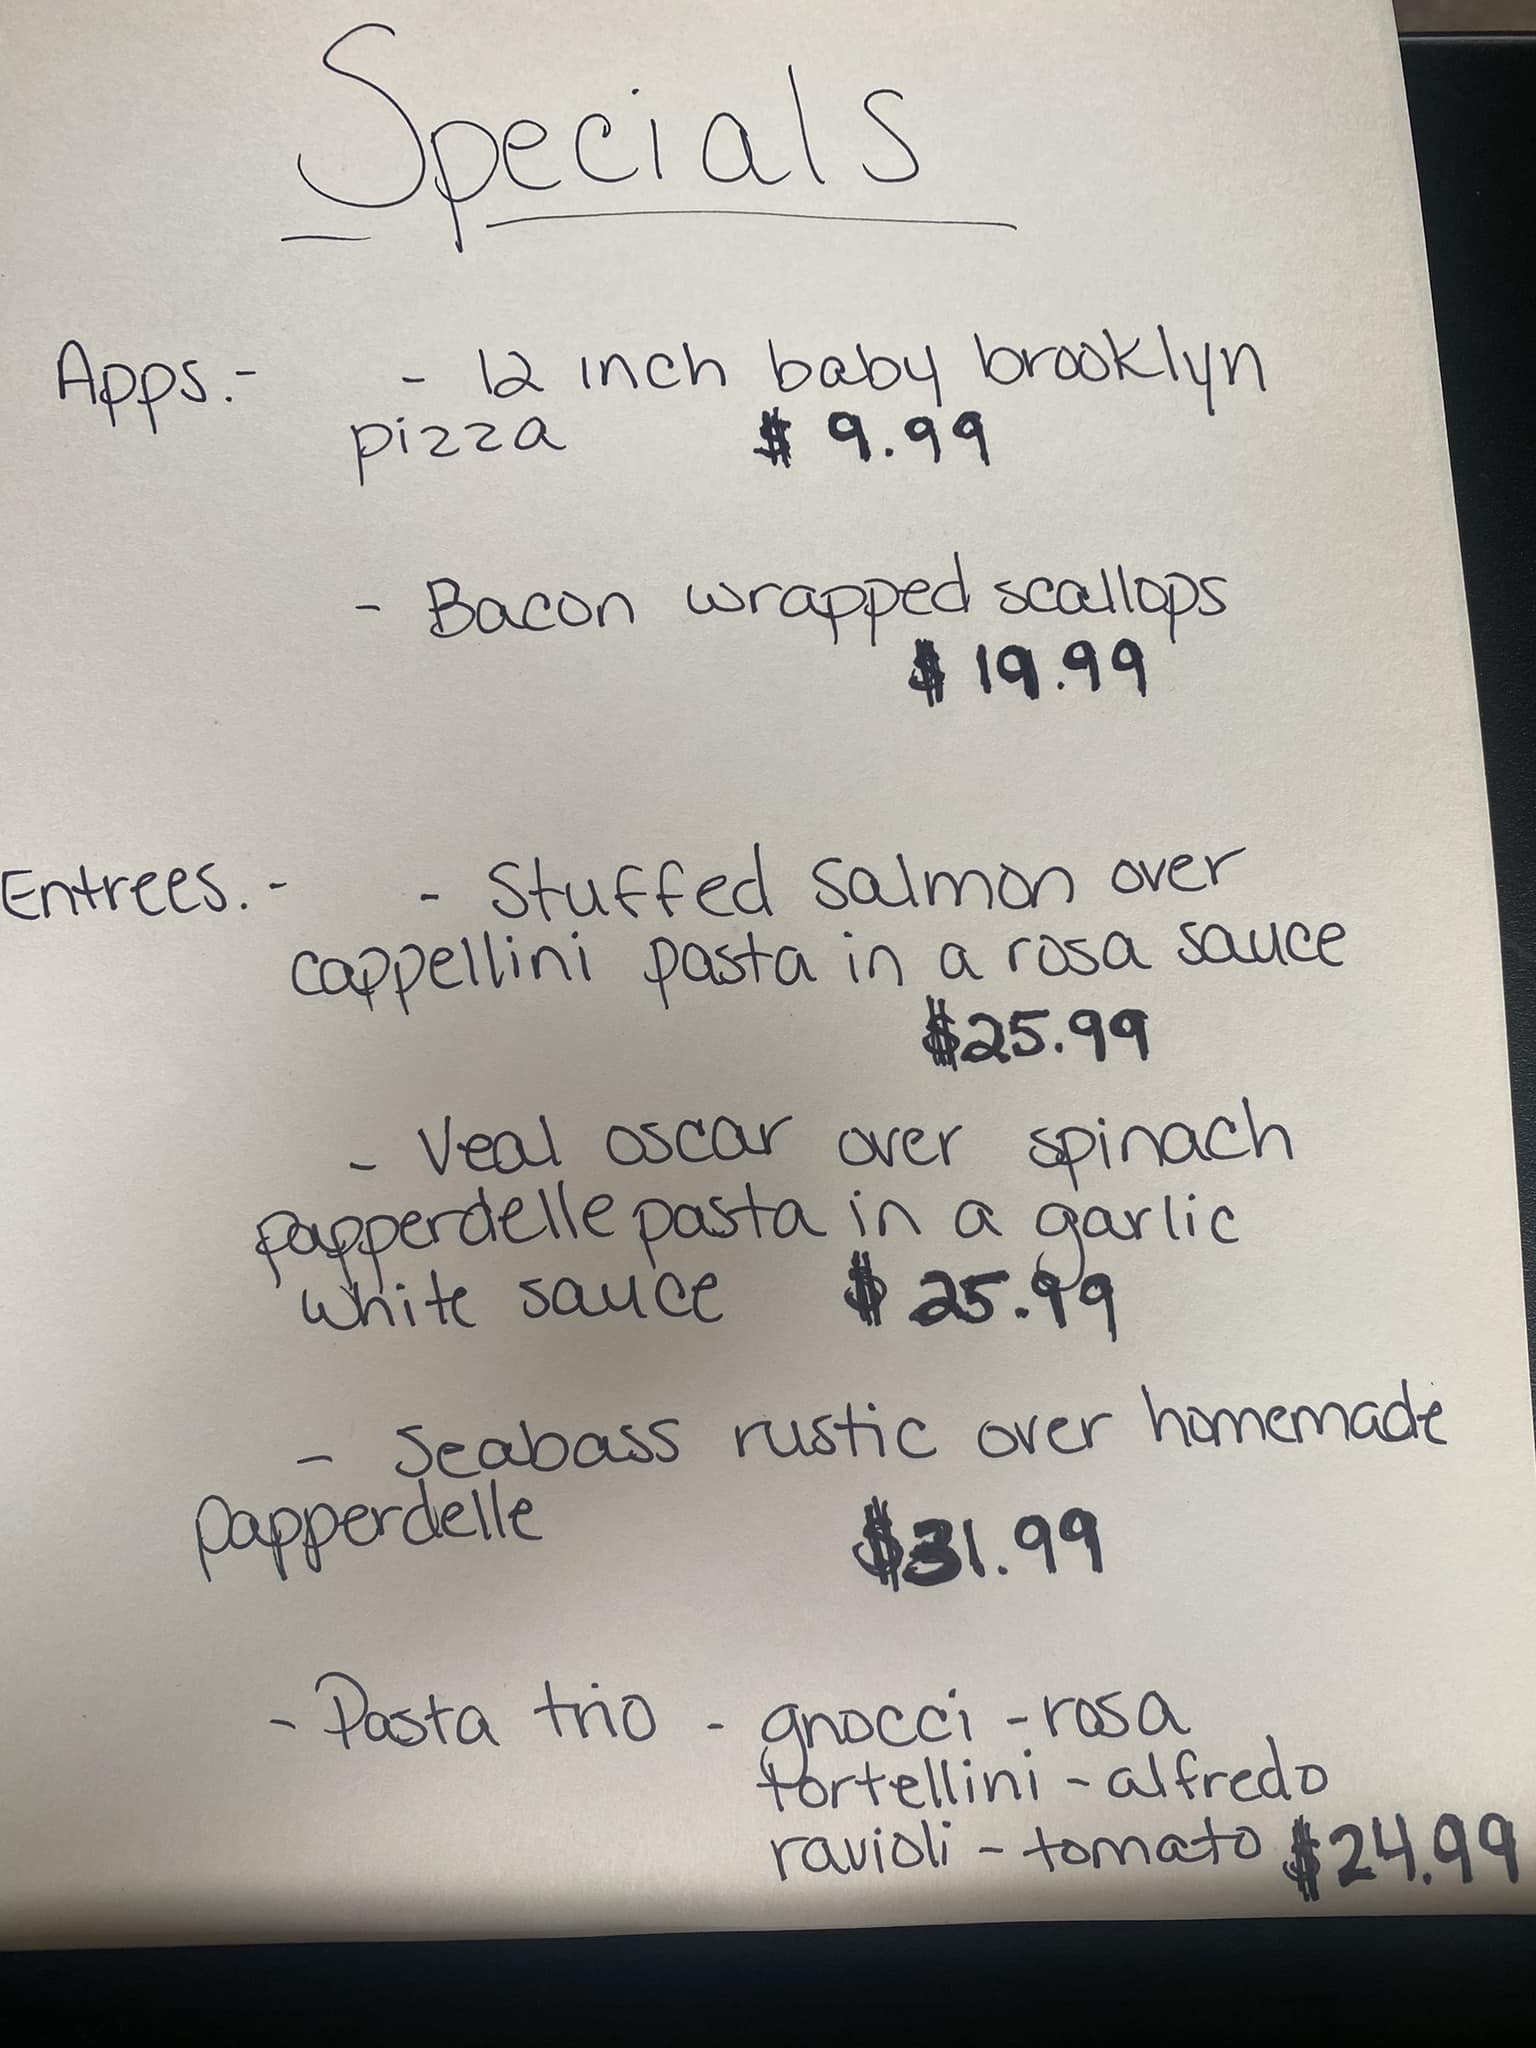 Specials
Apps:- - 12 inch baby brooklyn
pizza $9.99
- Bacon wrapped scallops
$19.99
Entrees:- - Stuffed Salmon over
cappellini pasta in a rosa sauce
$25.99
- Veal oscar over spinach
papperdelle pasta in a garlic
white sauce $25.99
- Seabass rustic over homemade
papperdelle $31.99
- Pasta trio - gnocci - rosa
tortellini - alfredo
ravioli - tomato $24.99